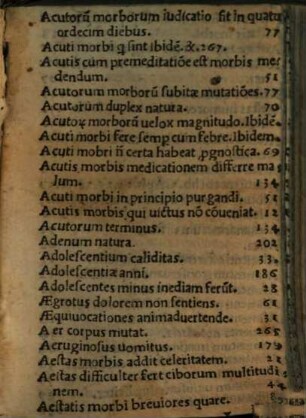 Acutorū morborum iudicatio fit in quatu
ordecim diebus. 77
Acuti morbi q̄ sint ibidē. &. 267.
Acutis cum premeditatiōe est morbis me
dendum. 51
Acutorum morborū subitæ mutatiōes. 77
Acutorum duplex natura. 70
Acutoꝝ morborū uelox magnitudo. Ibidē.
Acuti morbi fere semp cum febre. Ibidem.
Acuti mobri n̄ certa habeāt pgnostica. 69
Acutis morbis medicationem differre ma
lum. 134
Acuti morbi in principio purgandi. 51
Acutis morbis qui uictus nō cōueniat. 12
Acutorum terminus. 134
Adenum natura. 202
Adolescentium caliditas. 33.
Adolescentiæ anni. 186
Adolescentes minus inediam ferūt. 28
Ægrotus dolorem non sentiens. 61
Æquiuocationes animaduertende. 31
Aer corpus mutat. 265
Aeruginosus uomitus. 179
Aestas morbis addit celeritatem. 21
Aestas difficulter fert ciborum multitudi
nem. 4
Aestatis morbi breuiores quare.